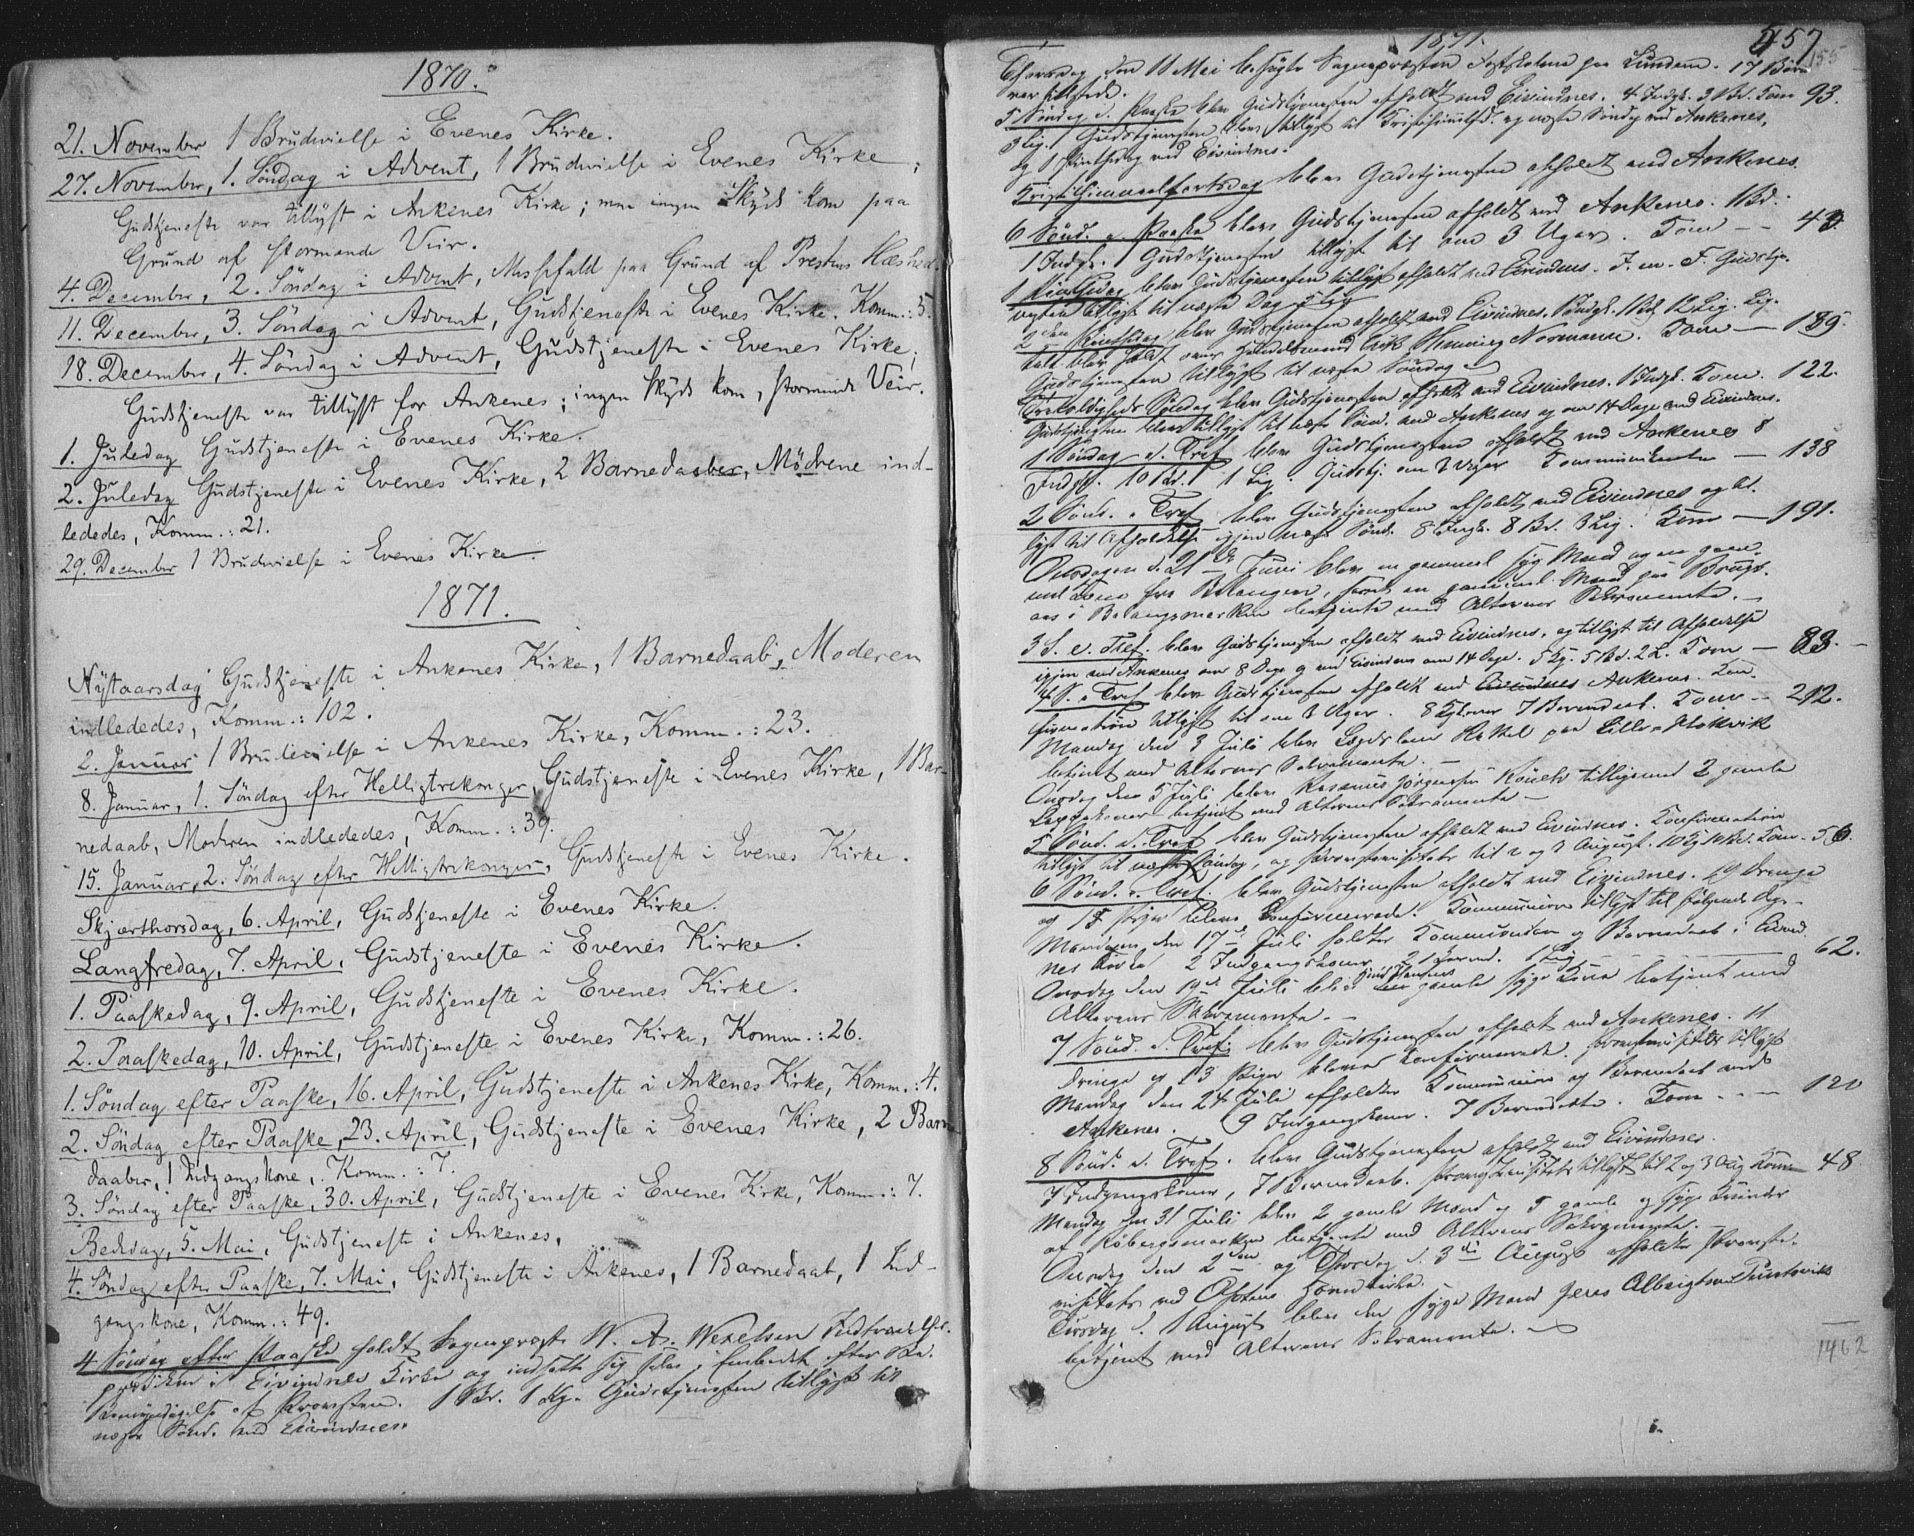 1870.
21. November 1 Brudvielse i Evenes Kirke.
27. November, 1. Søndag i Advent, 1 Brudvielse i Evenes Kirke;
Gudstjeneste var tillyst i Ankenes Kirke; men ingen Skyds kom paa
Grund af stormende Veir.
4. December, 2. Søndag i Advent, Messfald paa Grund af Prestens Hæshed.
11. December, 3. Søndag i Advent, Gudstjeneste i Evenes Kirke. Komm.: 5.
18. December, 4. Søndag i Advent, Gudstjeneste i Evenes Kirke;
Gudstjeneste var tillyst for Ankenes; ingen Skyds kom, stormende Veir.
1. Juledag Gudstjeneste i Evenes Kirke.
2. Juledag Gudstjeneste i Evenes Kirke, 2 Barnedaaber, Mødrene ind-
lededes, Komm.: 21.
29. December 1 Brudvielse i Evenes Kirke.
1871.
Nytaarsdag Gudstjeneste i Ankenes Kirke, 1 Barnedaab, Moderen
indlededes, Komm.: 102.
2. Januar 1 Brudevielse i Ankenes Kirke, Komm.: 23.
8. Januar, 1. Søndag efter Helligtrekonger, Gudstjeneste i Evenes Kirke, 1 Bar-
nedaab, Moderen indlededes, Komm.: 39.
15. Januar, 2. Søndag efter Helligtrekonger, Gudstjeneste i Evenes Kirke.
Skjærthorsdag, 6. April, Gudstjeneste i Evenes Kirke.
Langfredag, 7. April, Gudstjeneste i Evenes Kirke.
1. Paaskedag, 9. April, Gudstjeneste i Evenes Kirke.
2. Paaskedag, 10. April, Gudstjeneste i Evenes Kirke, Komm.: 26.
1. Søndag efter Paaske, 16. April, Gudstjeneste i Ankenes Kirke, Komm.: 4.
2. Søndag efter Paaske, 23. April, Gudstjeneste i Evenes Kirke, 2 Barne
daaber, 1 Indgangskone, Komm.: 7.
3. Søndag efter Paaske, 30. April, Gudstjeneste i Evenes Kirke, Komm.: 7.
Bededag, 5. Mai, Gudstjeneste i Ankenes.
4. Søndag efter Paaske, 7. Mai, Gudstjeneste i Ankenes, 1 Barnedaab, 1 Ind-
gangskone, Komm.: 49.
4 Søndag efter Paaske holdt Sognepræst W. A. Wexelsen Indtrædelses
prædiken i Eivindnes Kirke og indsatte sig selv i Embedet efter Be-
myndigelse af Provsten. 1 Br. 1 Kg. Gudstjenesten tillyst til
næste Sønd. ved Eivindnes.
1871.
457
155
Thorsdag den 11 Mai besøgte Sognepræsten Fastskolen paa Lundene. 17 Børn
var tilstede.
5 Søndag e. Paaske blev Gudstjenesten afholdt ved Eivindnes. 4 Indgk. 3 Bd. Kom 93.
3 Lig. Gudstjenesten blev tillyst til Kristihimmelfd. og næste Søndag ved Ankenes,
og 1 Pintsedag ved Eivindnes.
Kristihimmelfartsdag blev Gudstjenesten afholdt ved Ankenes.
6 Sønd. e. Paaske blev Gudstjenesten afholdt ved Ankenes. 1 Bd.
1 Indgk. Gudstjenesten tillyst til om 3 Uger. Kom -- 43.
1 Pintsedag blev Gudstjenesten afholdt ved Eivindnes. Gudstje-
nesten tillyst til næste Dag.
2den Pintsedag blev Gudstjenesten afholdt ved Eivindnes. 1 Indgk. 1 Bd. 12 Lig. Lig-
tale blev holdt over Handelsmand Erik Henning Normann. Kom — 189.
Gudstjenesten tillyst til næste Søndag
Trefoldigheds Søndag blev Gudstjenesten afholdt ved Eivindnes. 1 Indgk. Kom. 122.
Gudstjenesten blev tillyst til næste Sønd. ved Ankenes og om 14 Dage ved Eivindnes.
1 Søndag e. Tref. blev Gudstjenesten afholdt ved Ankenes 8
Indgk. 10 Bd. 1 Lig. Gudstj. om 3 Uger Kommunikanter — 138
2 Sønd. e. Tref. blev Gudstjenesten afholdt ved Eivindnes og til-
lyst til Afholdelse igjen næste Sønd. 8 Indgk. 8 Bd. 3 Lig. Kom — 191.
Onsdagen d. 21de Juni blev en gammel syg Mand og en gam-
mel Kone fra Balangen, samt en gammel Mand paa
i betjente med Alterens Sakramente.
3 S. e. Tref. blev Gudstjenesten afholdt ved Eivindnes, og tillyst til Afholdelse
igjen ved Ankenes om 8 Dage og ved Eivindnes om 14 Dage. 5 Kg. 5 Bd. 2 L. Kom — 83.
4 S. e. Tref. blev Gudstjenesten afholdt ved Eivindnes Ankenes. Kon-
firmation tillyst til om 3 Uger. 8 Kg. 7 Barnedaab. Kom — 212.
Mandag den 3 Juli blev
betjent med Alterens Sakramente.
Onsdag den 5 Juli blev Rasmus Jørgensen tilligemed 2 gamle
betjent med Alterens Sakramente.
5 Sønd. e. Tref. blev Gudstjenesten afholdt ved Eivindnes. Konfirmation
tillyst til næste Søndag, og Provstevisitats til 2 og 3 August. 10 Kg. Kom. 56.
6 Sønd. e. Tref. blev Gudstjenesten afholdt ved Eivindnes. 19 Drenge
og 15 Piger bleve Konfirmerede. Kommunion tillyst til følgende Dag.
Mandagen den 17de Juli holdtes Kommunion og Barnedaab i Eivind
nes Kirke 2 Indgangskoner 2 Barnd. 1 Lig — 62.
Onsdag den 19de Juli blev gamle syge Kone betjent med
Alterens Sakramente.
7 Sønd. e. Tref. blev Gudstjenesten afholdt ved Ankenes. 11
Drenge og 13 Piger bleve Konfirmerede. Provstevisitats tillyst
Mandag den 24 Juli afholdtes Kommunion og Barnedaab ved
Ankenes. 9 Indgangskoner. 7 Barnedaab. Kom. — 120
8 Sønd. e. Tref. blev Gudstjenesten afholdt ved Eivindnes.
7 Indgangskoner, 7 Barnedaab. Provstevisitats tillyst til 2 og 3 Aug. Kom 48
Mandag den 31 Juli blev 2 gamle Mænd og 5 gamle og syge Kvinder
af betjente med Alterens Sakramente.
Onsdag den 2den og Thorsdag d. 3die August afholdtes Provste-
visitats ved Ofotens
Tirsdag d. 1 August blev den syge Mand Jens Albrigtsen
betjent med Alterens Sakramente.
1462